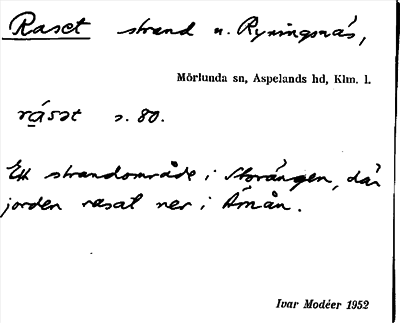 Raset strand u. Ryningsnäs,
Mörlunda sn, Aspelands hd, Klm. l.
ráset s. 80.
Ett strandområde i Storängen, där
jorden rasat ner i Åmån.
Ivar Modéer 1952